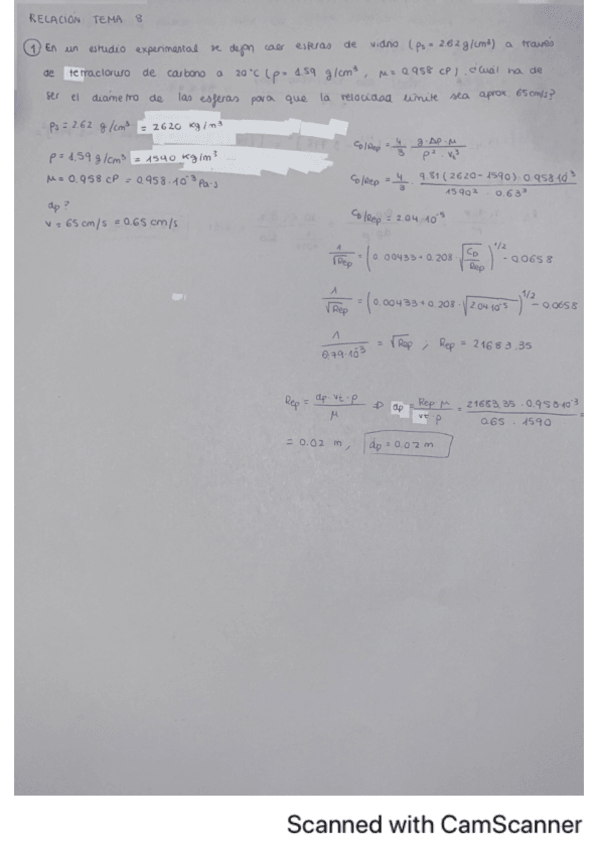 RELACIÓN TEMA 8
① En un estudio experimental se dejan caer esferas de vidrio (ρs = 2.62 g/cm³) a través
de tetracloruro de carbono a 20°C (ρ = 1.59 g/cm³, μ = 0.958 cP). ¿Cuál ha de
ser el diámetro de las esferas para que la velocidad límite sea aprox. 65 cm/s?
= 2620 kg/m³
ρ = 1.59 g/cm³ = 1590 kg/m³
μ = 0.958 cP = 0.958·10⁻³ Pa·s
dp?
v = 65 cm/s = 0.65 cm/s
CD/Rep = 4/3 · g·Δρ·μ / ρ²·vt³
CD/Rep = 4/3 · 9.81(2620-1590)·0.958·10⁻³ / 1590²·0.65³
CD/Rep = 2.04·10⁻⁵
1/√Rep = (0.00433+0.208·√(CD/Rep))^1/2 - 0.0658
1/√Rep = (0.00433+0.208·√(2.04·10⁻⁵))^1/2 - 0.0658
= √Rep ; Rep = 21683.35
Rep = dp·vt·ρ / μ ⇒ dp = Rep·μ / vt·ρ = 21683.35·0.958·10⁻³ / 0.65·1590 =
= 0.02 m, dp = 0.02 m
Scanned with CamScanner